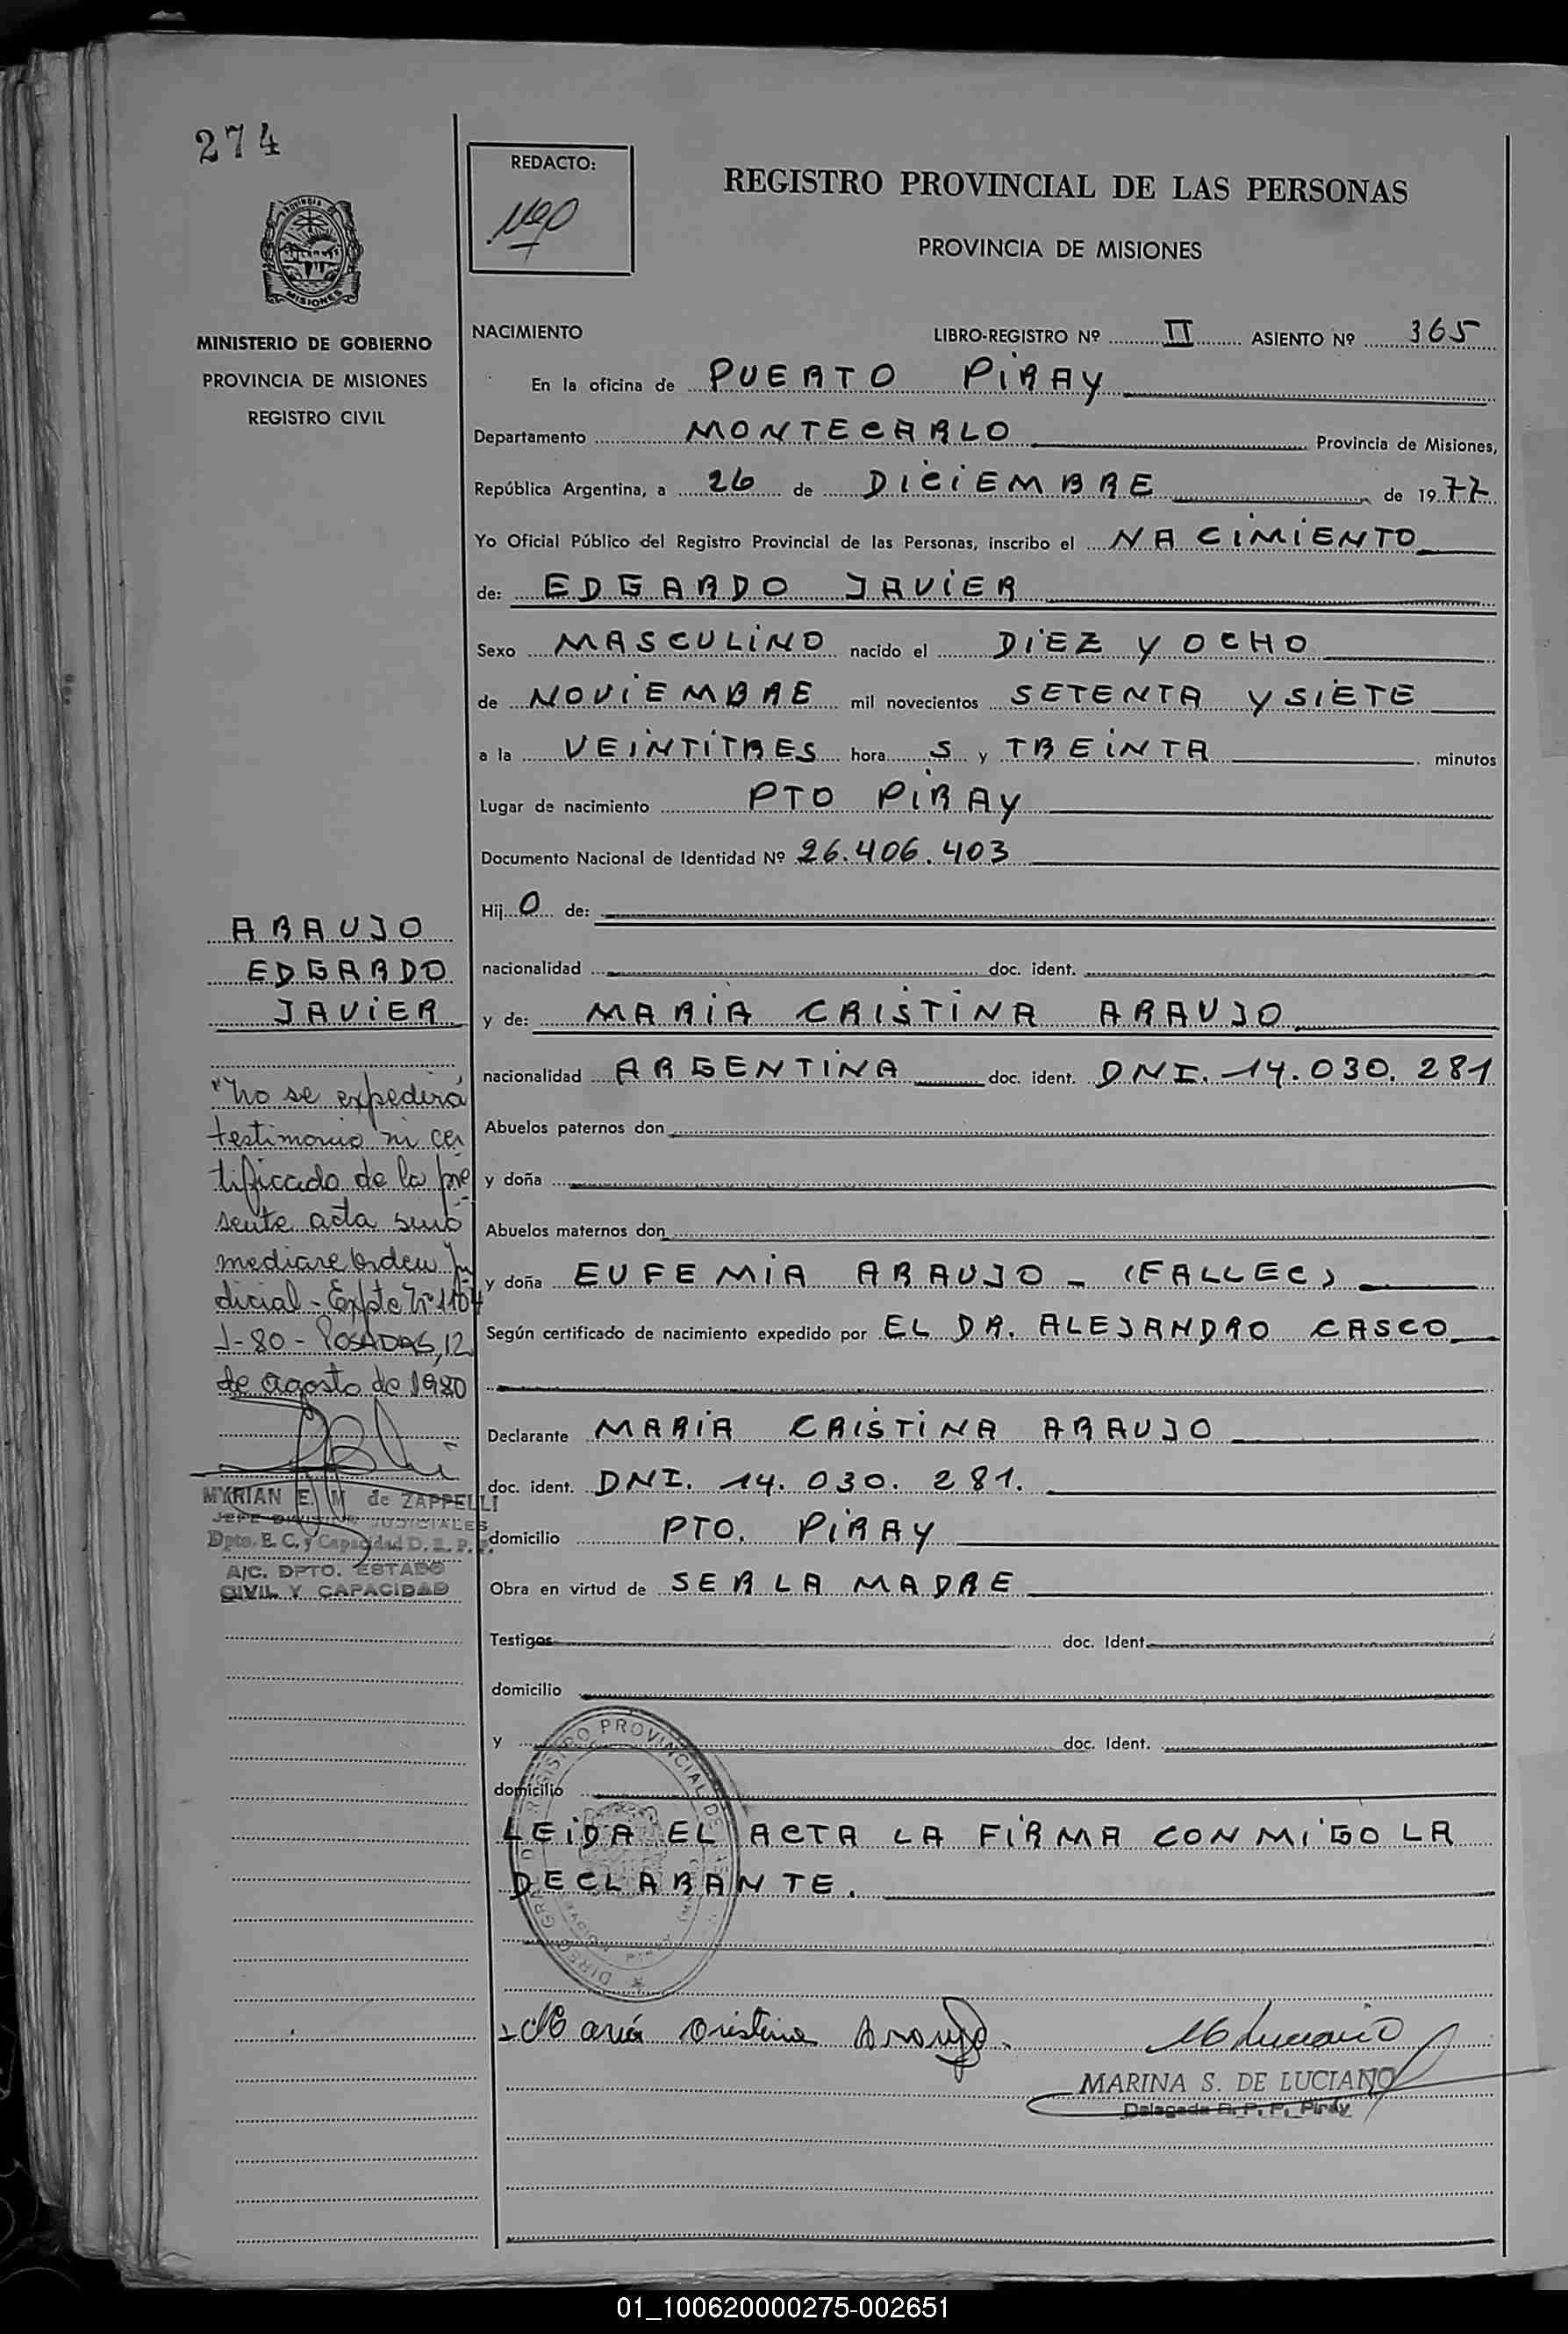 274
REDACTO:
REGISTRO PROVINCIAL DE LAS PERSONAS
PROVINCIA DE MISIONES
PROVINCIA DE
MISIONES
MINISTERIO DE GOBIERNO
PROVINCIA DE MISIONES
REGISTRO CIVIL
NACIMIENTO LIBRO-REGISTRO Nº II ASIENTO Nº 365
En la oficina de PUERTO PIRAY
Departamento MONTECARLO Provincia de Misiones,
República Argentina, a 26 de DICIEMBRE de 1977
Yo Oficial Público del Registro Provincial de las Personas, inscribo el NACIMIENTO
de: EDGARDO JAVIER
Sexo MASCULINO nacido el DIEZ Y OCHO
de NOVIEMBRE mil novecientos SETENTA Y SIETE
a la VEINTITRES hora S y TREINTA minutos
Lugar de nacimiento PTO PIRAY
Documento Nacional de Identidad Nº 26.406.403
Hij O de:
nacionalidad doc. ident.
y de: MARIA CRISTINA ARAUJO
nacionalidad ARGENTINA doc. ident. DNI. 14.030.281
Abuelos paternos don
y doña
Abuelos maternos don
y doña EUFEMIA ARAUJO - (FALLEC)
Según certificado de nacimiento expedido por EL DR. ALEJANDRO CASCO
Declarante MARIA CRISTINA ARAUJO
doc. ident. DNI. 14.030.281.
domicilio PTO. PIRAY
Obra en virtud de SER LA MADRE
Testigos doc. Ident.
domicilio
y doc. Ident.
domicilio
LEIDA EL ACTA LA FIRMA CONMIGO LA
DECLARANTE.
María Cristina Araujo.
MARINA S. DE LUCIANO
Delegada R. P. P. Piray
ARAUJO
EDGARDO
JAVIER
"No se expedirá
testimonio ni cer
tificado de la pre
sente acta sino
mediare Orden Ju
dicial - Expte Nº 1104
J-80 - POSADAS, 12
de agosto de 1980
MYRIAN E. M de ZAPPELLI
JEFE DIVISION JUDICIALES
Dpto. E. C. y Capacidad D. R. P. P.
A/C. DPTO. ESTADO
CIVIL Y CAPACIDAD
01_100620000275-002651